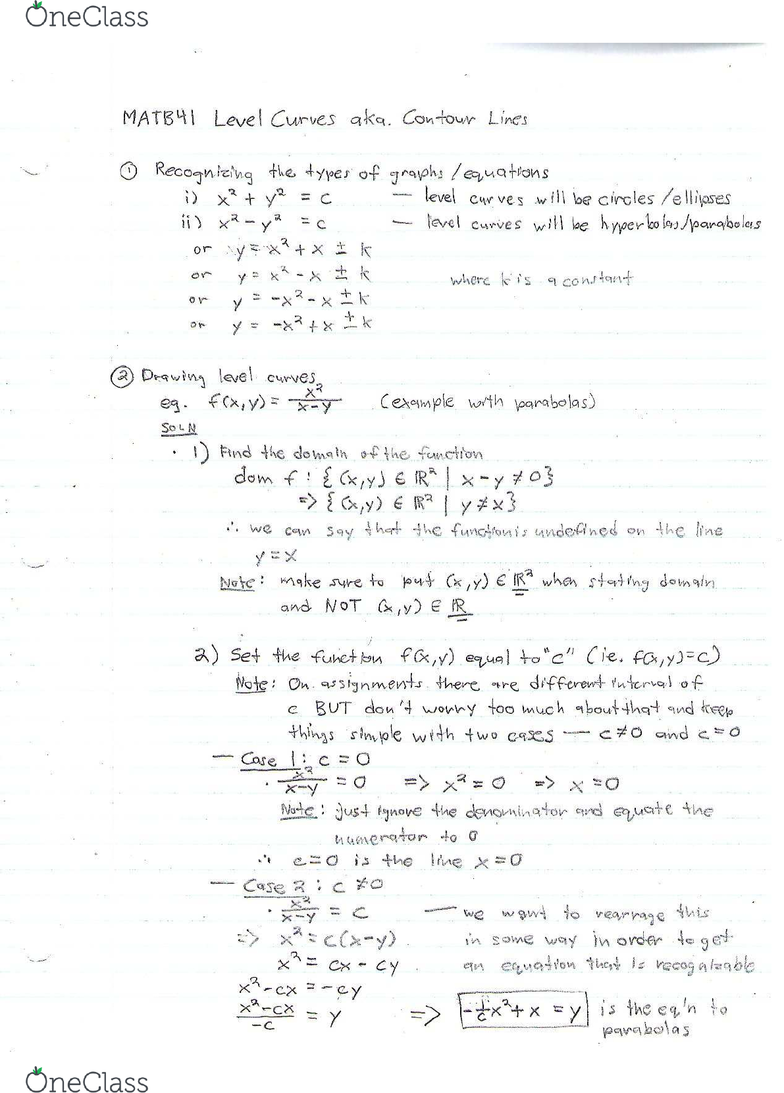 OneClass
MATB41 Level Curves aka. Contour Lines
① Recognizing the types of graphs/equations
i) x² + y² = c — level curves will be circles/ellipses
ii) x² - y² = c — level curves will be hyperbolas/parabolas
or y = x² + x ± k
or y = x² - x ± k where k is a constant
or y = -x² - x ± k
or y = -x² + x ± k
② Drawing level curves
eg. f(x,y) = x²/(x-y) (example with parabolas)
SOLN
· 1) Find the domain of the function
dom f : {(x,y) ∈ ℝ² | x-y ≠ 0}
=> {(x,y) ∈ ℝ² | y ≠ x}
∴ we can say that the function is undefined on the line
y = x
Note: make sure to put (x,y) ∈ ℝ² when stating domain
and NOT (x,y) ∈ ℝ
2) Set the function f(x,y) equal to "c" (ie. f(x,y)=c)
Note: On assignments there are different interval of
c BUT don't worry too much about that and keep
things simple with two cases — c≠0 and c=0
— Case 1: c = 0
· x²/(x-y) = 0 => x² = 0 => x = 0
Note: just ignore the denominator and equate the
numerator to 0
∴ c=0 is the line x=0
— Case 2: c ≠ 0
· x²/(x-y) = c — we want to rearrage this
=> x² = c(x-y) in some way in order to get
x² = cx - cy an equation that is recognizable
x² - cx = -cy
(x²-cx)/-c = y => -1/c x² + x = y is the eq'n to
parabolas
OneClass